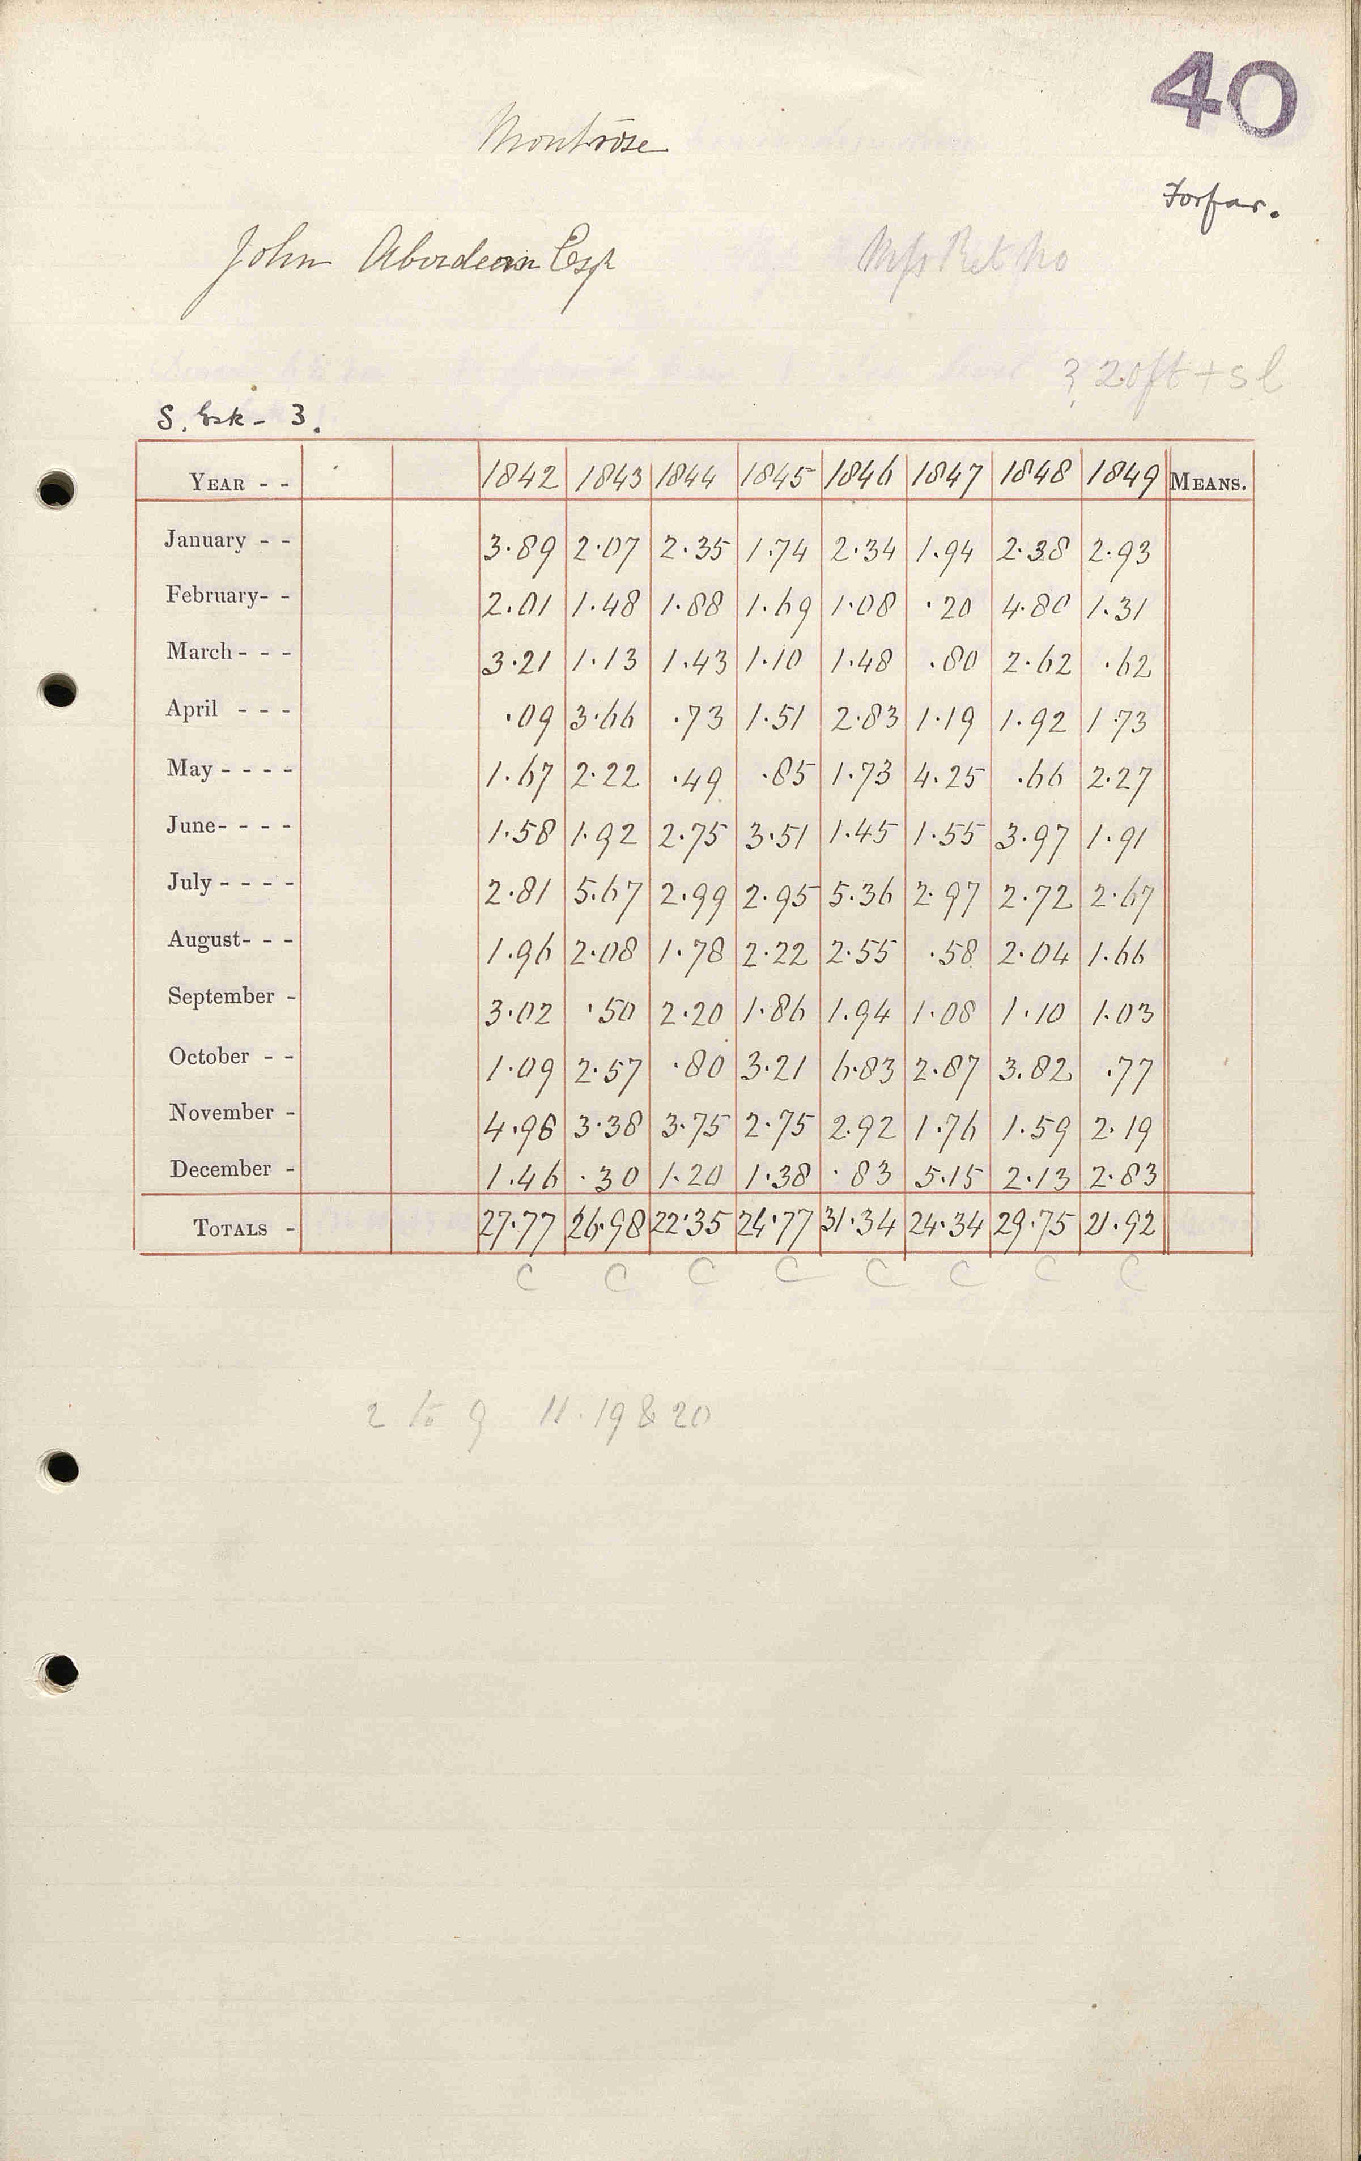 40
Montrose
Forfar.
John Aberdein Esqr
Mss Ret No
? 20ft + s l
S. Esk - 3.
YEAR - - 1842 1843 1844 1845 1846 1847 1848 1849 MEANS.
January - - 3.89 2.07 2.35 1.74 2.34 1.94 2.38 2.93
February- - 2.01 1.48 1.88 1.69 1.08 .20 4.80 1.31
March - - - 3.21 1.13 1.43 1.10 1.48 .80 2.62 .62
April - - - .09 3.66 .73 1.51 2.83 1.19 1.92 1.73
May - - - - 1.67 2.22 .49 .85 1.73 4.25 .66 2.27
June- - - - 1.58 1.92 2.75 3.51 1.45 1.55 3.97 1.91
July - - - - 2.81 5.67 2.99 2.95 5.36 2.97 2.72 2.67
August- - - 1.96 2.08 1.78 2.22 2.55 .58 2.04 1.66
September - 3.02 .50 2.20 1.86 1.94 1.08 1.10 1.03
October - - 1.09 2.57 .80 3.21 6.83 2.87 3.82 .77
November - 4.98 3.38 3.75 2.75 2.92 1.76 1.59 2.19
December - 1.46 .30 1.20 1.38 .83 5.15 2.13 2.83
TOTALS - 27.77 26.98 22.35 24.77 31.34 24.34 29.75 21.92
C C C C C C C C
2 to 9 11. 19 & 20